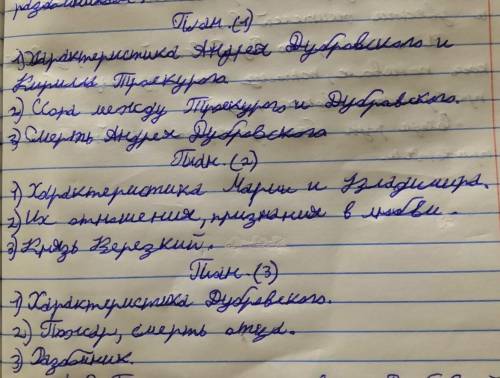 разбойником,
План. (1)
1) Характеристика Андрея Дубровского и
Кирилла Троекурого.
2) Сора между Троекурого и Дубровского.
3) Смерть Андрея Дубровского
План. (2)
1) Характеристика Марии и Владимира.
2) Их отношения, признания в любви.
3) Князь Верезкий.
План. (3)
1) Характеристика Дубровского.
2) Пожар, смерть отца.
3) Разбойник.